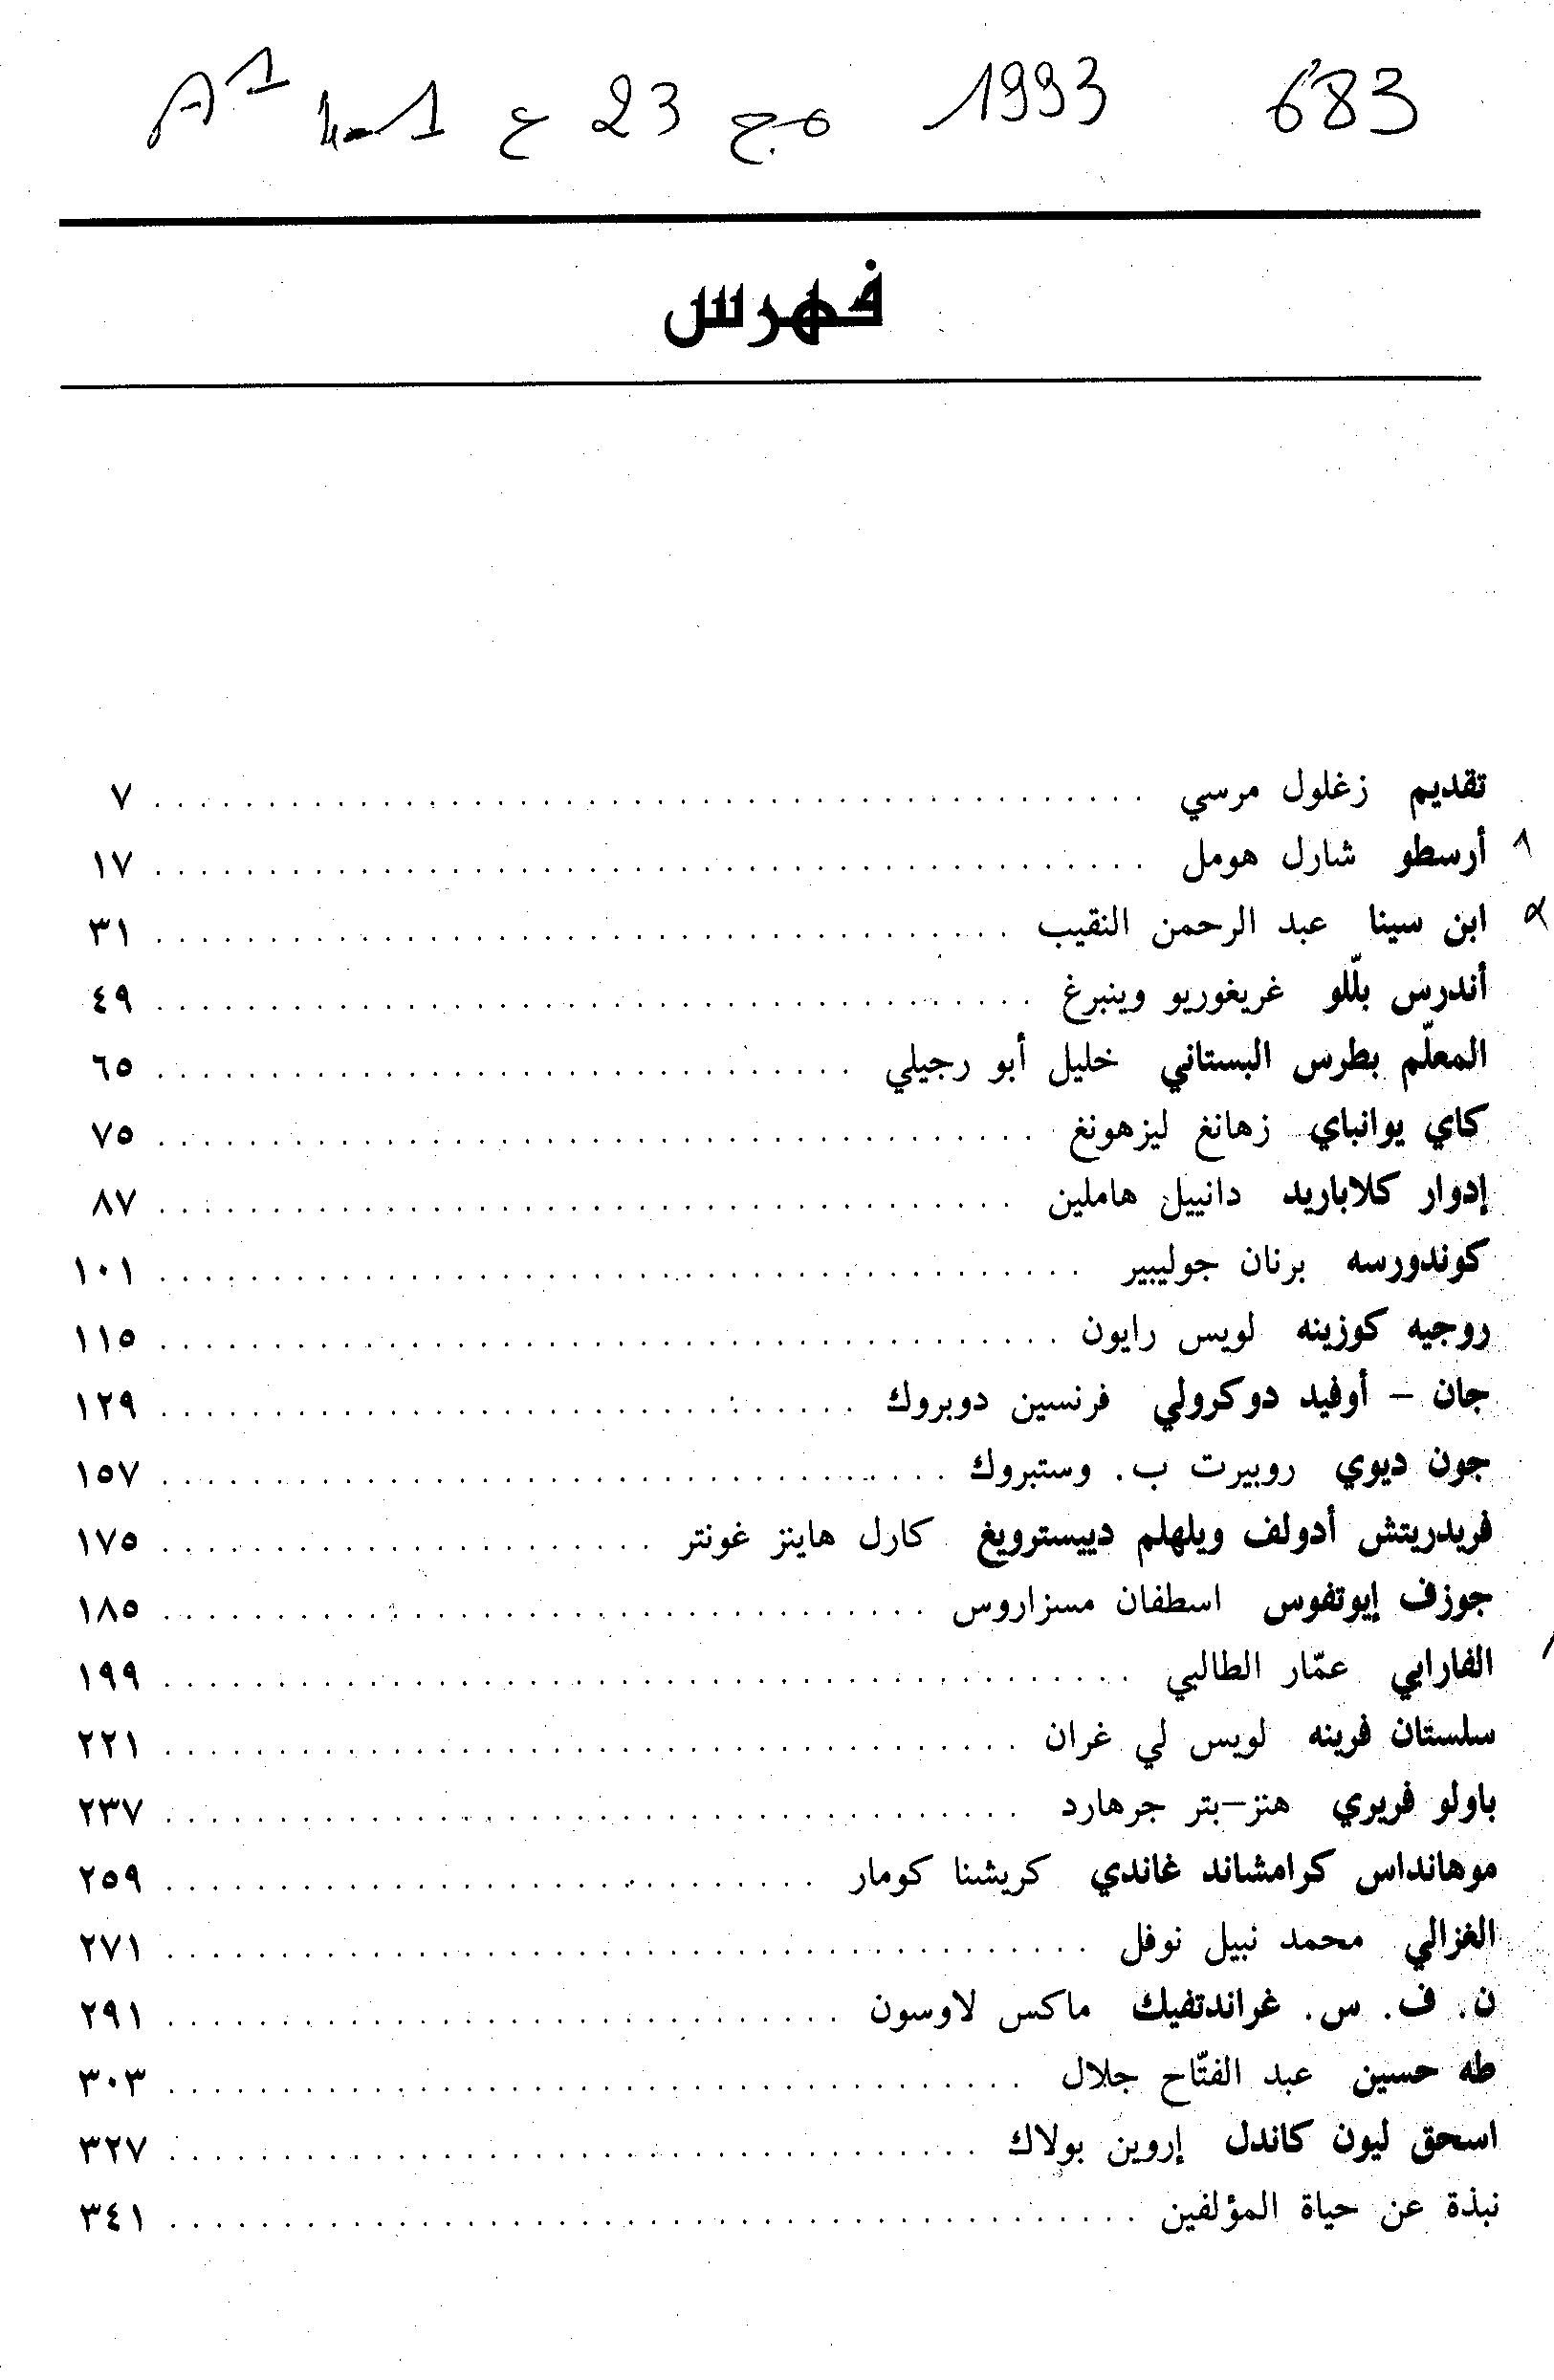 683 1993 مج 23 ع 1 A1
فهرس
تقديم زغلول مرسي ٧
أرسطو شارل هومل ١٧
ابن سينا عبد الرحمن النقيب ٣١
أندرس بلّلو غريغوريو وينبرغ ٤٩
المعلّم بطرس البستاني خليل أبو رجيلي ٦٥
كاي يوانباي زهانغ ليزهونغ ٧٥
إدوار كلاباريد دانييل هاملين ٨٧
كوندورسه برنان جوليبير ١٠١
روجيه كوزينه لويس رايون ١١٥
جان – أوفيد دوكرولي فرنسين دوبروك ١٢٩
جون ديوي روبيرت ب. وستبروك ١٥٧
فريدريتش أدولف ويلهلم دييسترويغ كارل هاينز غونتر ١٧٥
جوزف إيوتفوس اسطفان مسزاروس ١٨٥
الفارابي عمّار الطالبي ١٩٩
سلستان فرينه لويس لي غران ٢٢١
باولو فريري هنز–بتر جرهارد ٢٣٧
موهانداس كرامشاند غاندي كريشنا كومار ٢٥٩
الغزالي محمد نبيل نوفل ٢٧١
ن. ف. س. غراندتفيك ماكس لاوسون ٢٩١
طه حسين عبد الفتّاح جلال ٣٠٣
اسحق ليون كاندل إروين بولاك ٣٢٧
نبذة عن حياة المؤلفين ٣٤١